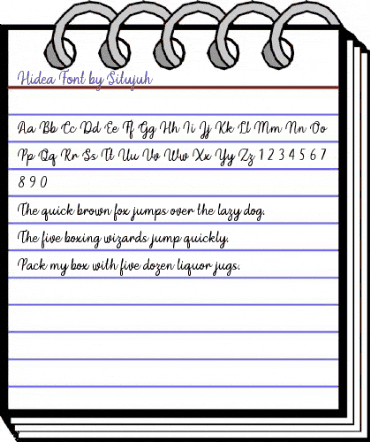 Hidea Font by Situjuh
Aa Bb Cc Dd Ee Ff Gg Hh Ii Jj Kk Ll Mm Nn Oo
Pp Qq Rr Ss Tt Uu Vv Ww Xx Yy Zz 1 2 3 4 5 6 7
8 9 0
The quick brown fox jumps over the lazy dog.
The five boxing wizards jump quickly.
Pack my box with five dozen liquor jugs.